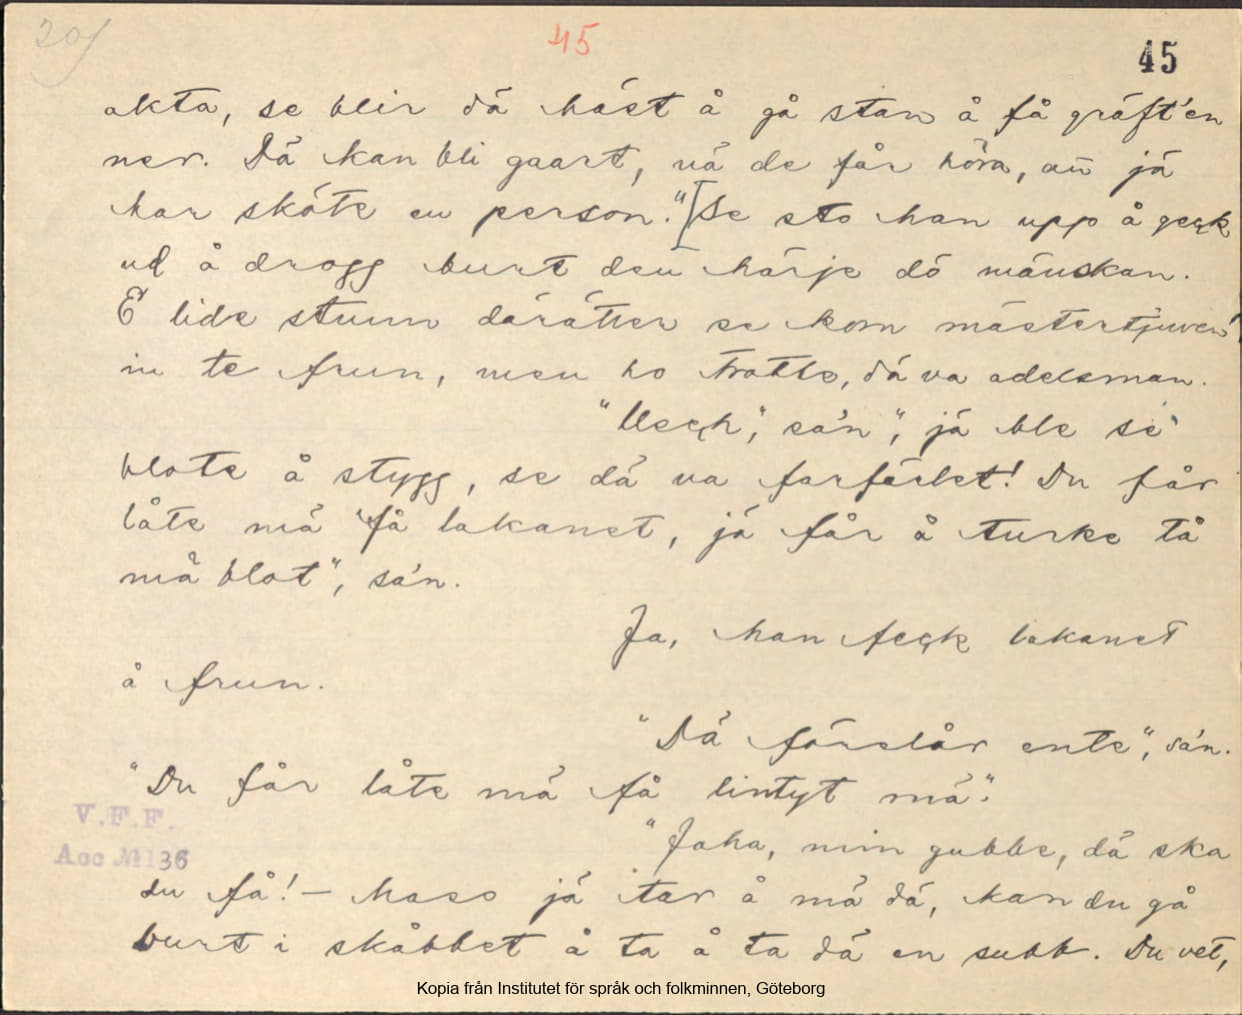 20/ 45 45
akta, se blir dá hást å gå stan å få gräft'en
ner. Dá kan bli gaart, nå de får höra, añ já
har skóte en person." [Se sto han upp å geck
ud å drogg burt den hárje dö mánskan.
E lide stunn därätter se kom mästertjuven
in te frun, men ho trotte, dá va adelsman.
sa'n ", já ble sé
blote å stygg, se dá va farfärlet! Du får
låte má få lakanet, já får å turke tå
má blot", sa'n.
Ja, han feck lakanet
å frun.
"Dá förslår ente", sa'n.
"Du får låte má få lintyt má".
"Jaha, min gubbe, dá ska
du få! – Maso já tar å má dá, kan du gå
burt i skåbbet å ta å ta dá en subb. Du vet,
V.F.F.
Acc № 1136
Kopia från Institutet för språk och folkminnen, Göteborg